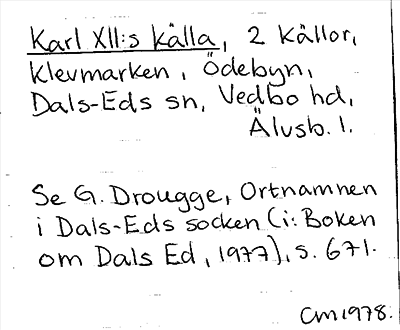 Karl XII:s källa, 2 källor,
Klevmarken, Ödebyn,
Dals-Eds sn, Vedbo hd,
Älvsb. l.
Se G. Drougge, Ortnamnen
i Dals-Eds socken (i: Boken
om Dals Ed, 1977), s. 671.
CM 1978.